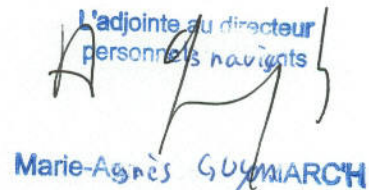 L'adjointe au directeur
personnels navigants
Marie-Agnès GUYOMARC'H